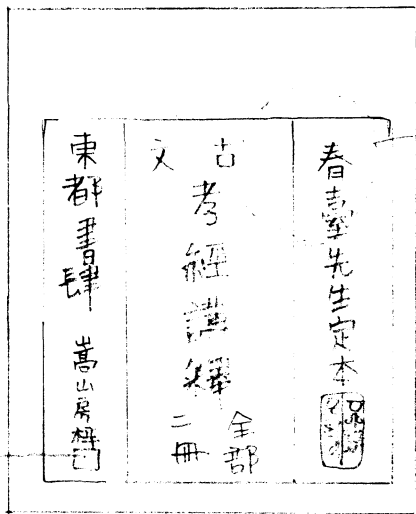 春臺先生定本
古文
孝經講釋
全部
二冊
東都書肆 嵩山房梓